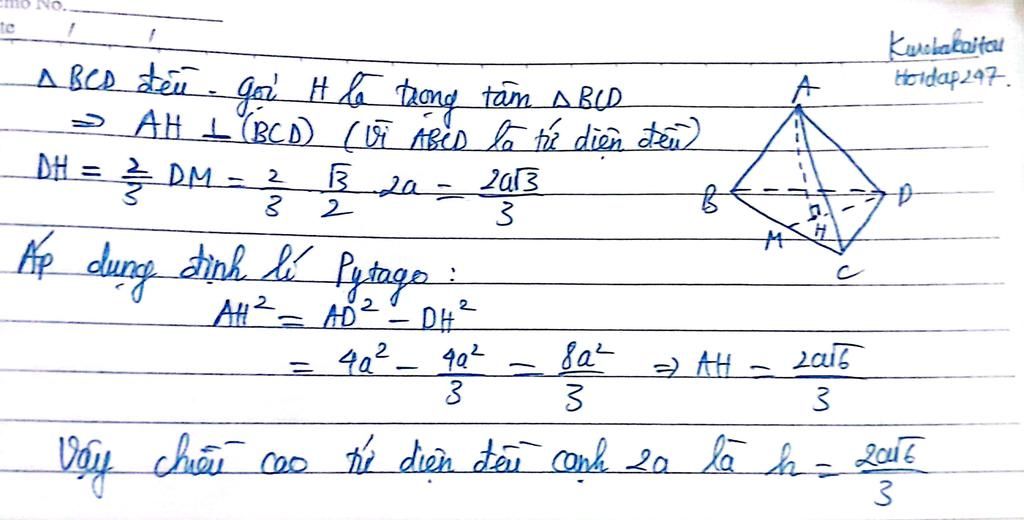 mo No.
te / /
Kurobakaitou
Hoidap247.
Δ BCD đều - gọi H là trọng tâm Δ BCD
⇒ AH ⊥ (BCD) (Vì ABCD là tứ diện đều)
DH = 2/3 DM = 2/3 √3/2 2a = 2a√3/3
A
B D
M H
C
Áp dụng định lí Pytago :
AH² = AD² - DH²
= 4a² - 4a²/3 = 8a²/3 ⇒ AH = 2a√6/3
Vậy chiều cao tứ diện đều cạnh 2a là h = 2a√6/3